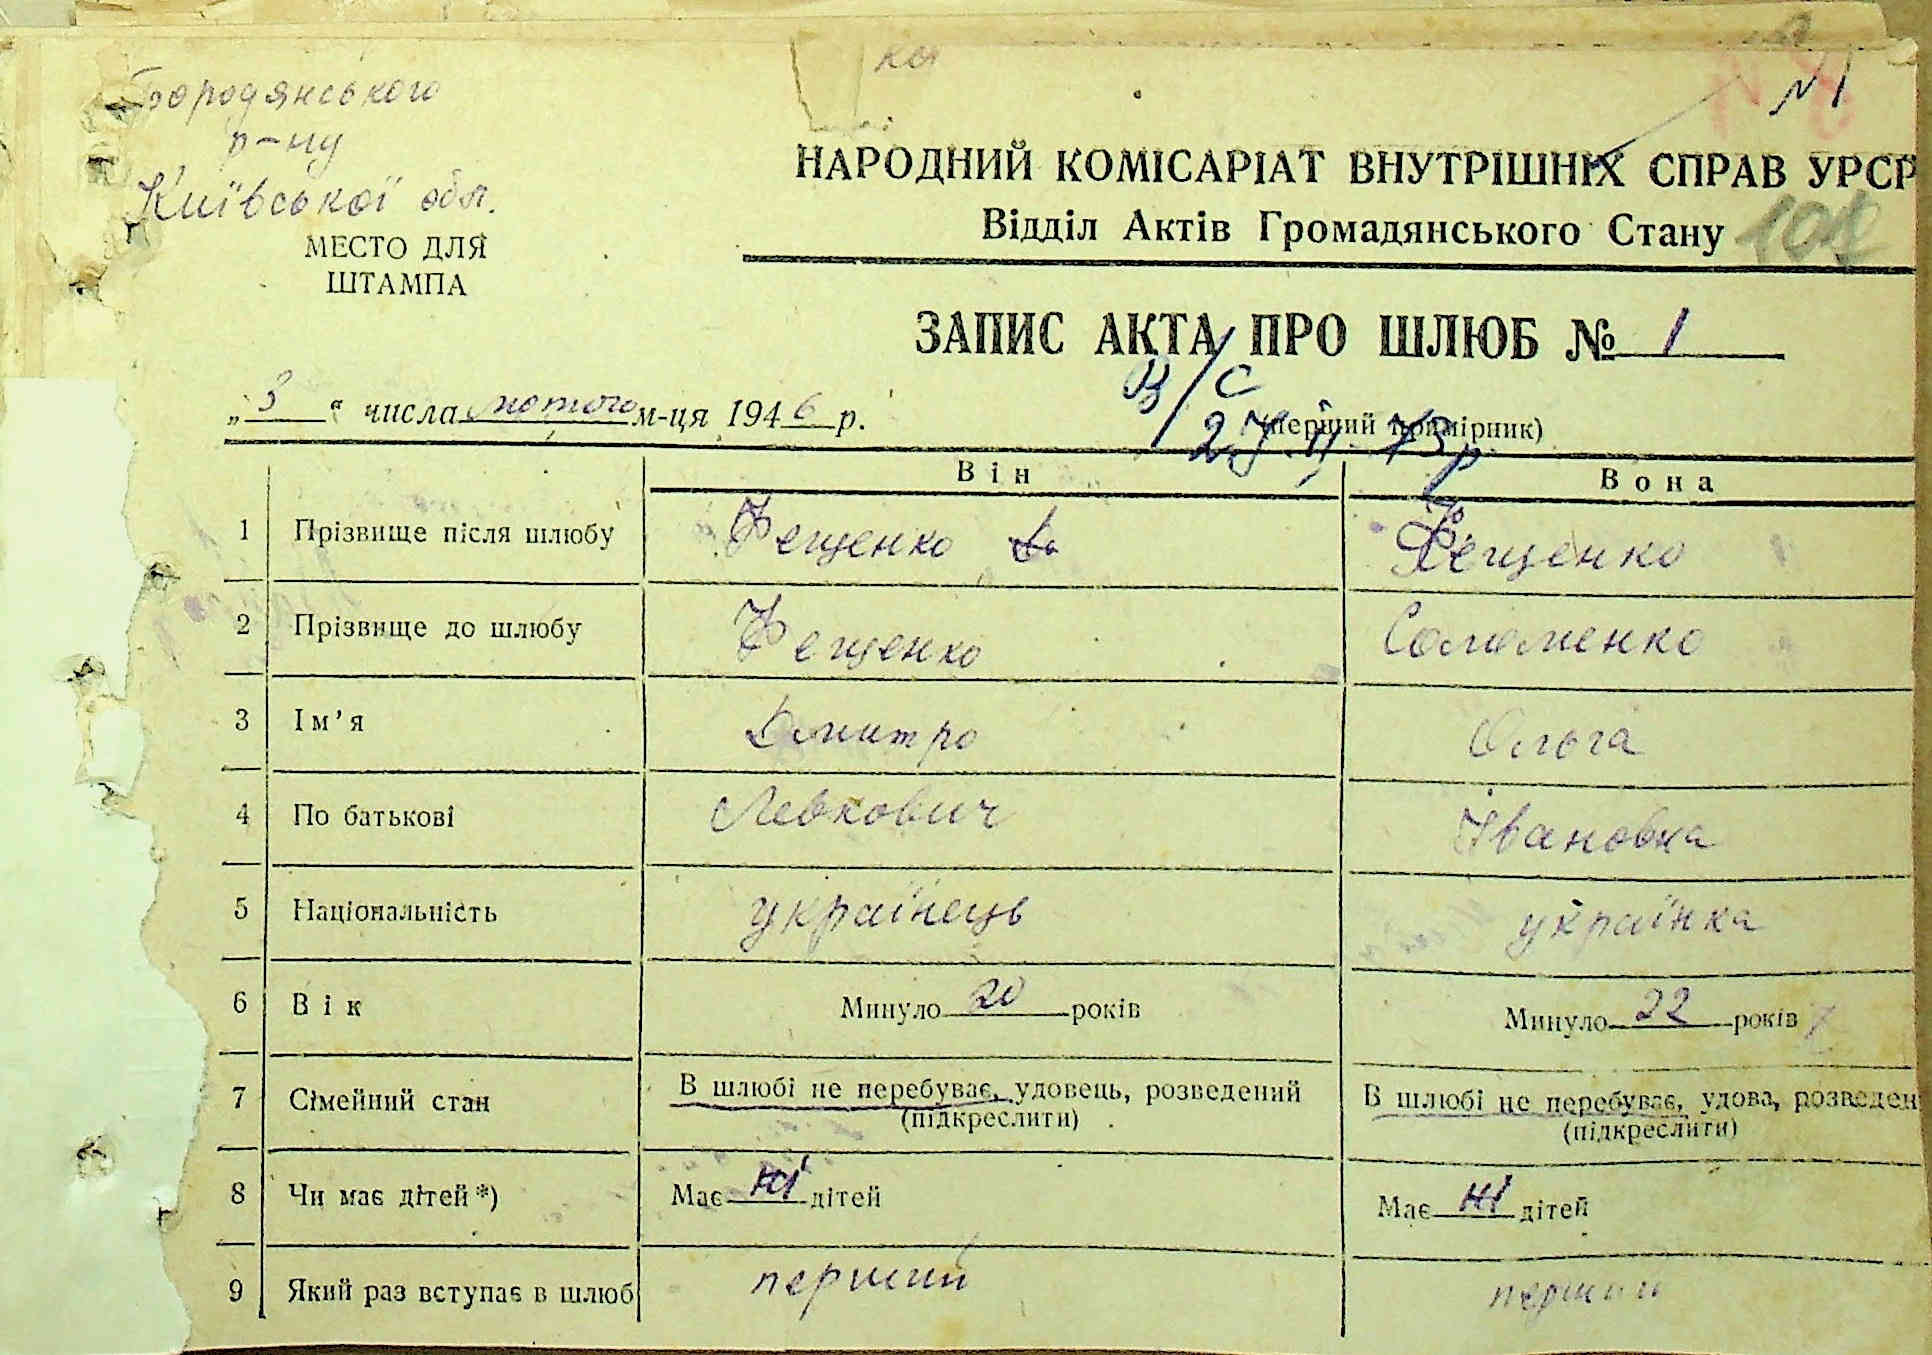 ка
№1
Бородянського
р-ну
Київської обл.
МЕСТО ДЛЯ
ШТАМПА
НАРОДНИЙ КОМІСАРІАТ ВНУТРІШНІХ СПРАВ УРСР
Відділ Актів Громадянського Стану
ЗАПИС АКТА ПРО ШЛЮБ № 1
В/С
„ 3 “ числа лютого м-ця 1946 р.
(перший примірник)
27 II 73р
Він Вона
1 Прізвище після шлюбу Фещенко Фещенко
2 Прізвище до шлюбу Фещенко Соломенко
3 Ім’я Дмитро Ольга
4 По батькові Левкович Івановна
5 Національність українець українка
6 Вік Минуло 20 років Минуло 22 років
7 Сімейний стан В шлюбі не перебуває, удовець, розведений В шлюбі не перебуває, удова, розведен
(підкреслити) (підкреслити)
8 Чи має дітей *) Має ні дітей Має ні дітей
9 Який раз вступає в шлюб перший перший